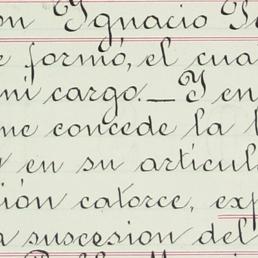 on Ignacio
e formó, el cua
mi cargo.—Y en
me concede la l
y en su articul
ión catorce, exp
a suscesion del